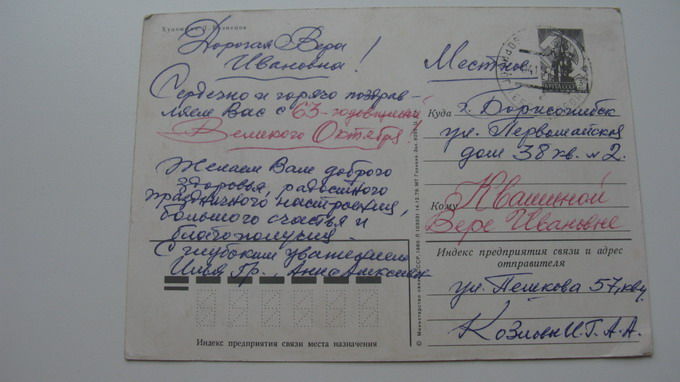 Художник
Дорогая Вера
Ивановна!
Сердечно и горячо поздрав-
ляем Вас с 63-годовщиной
Великого Октября
Желаем Вам доброго
здоровья, радостного
праздничного настроения,
большого счастья и
благополучия.
С глубоким уважением
Местное
Куда г. Борисоглебск
ул. Первомайская
дом 38 кв. 2.
Кому Квашиной
Вере Ивановне
Индекс предприятия связи и адрес
отправителя
ул. Пешкова 57,
И.Г. А.А.
Индекс предприятия связи места назначения